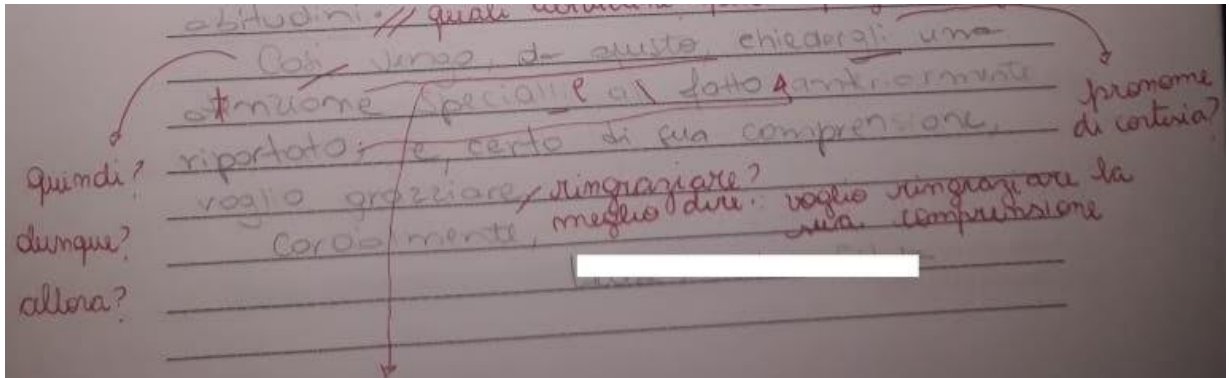 abitudini. // quali
Così vengo, da questo, chiedergli una
attenzione speciale al fatto anteriormente
riportato; e, certo di sua comprensione,
voglio grazziare, ringraziare?
Cordialmente, meglio dire: voglio ringraziare la
sua comprensione
quindi?
dunque?
allora?
pronome
di cortesia?